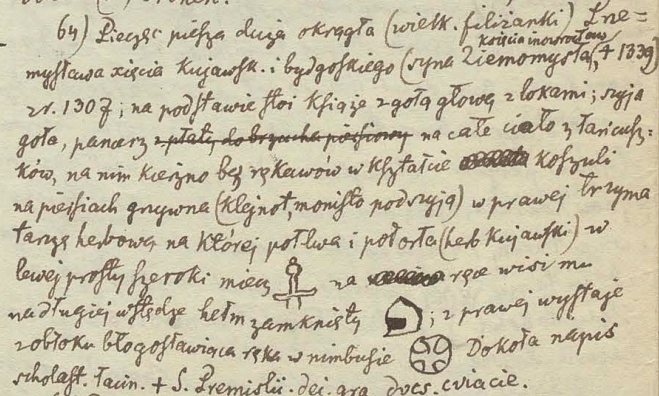 64) Pieczęć piesza duża okrągła (wielk. filiżanki) Prze=
księcia inowrocław
mysława xięcia Kujawsk. i bydgoskiego (syna Ziemomysła, + 1339)
z r. 1307; na podstawie stoi książę z gołą głową z lokami; szyja
goła, pancerz z płatą do brzucha piersiowy na całe ciało z łańcusz=
ków, na nim kieżno bez rękawów w kształcie koszuli
na piersiach grzywna (klejnot, monisto pod szyją) w prawej trzyma
tarzę herbową na której pół lwa i pół orła (herb kujawski) w
lewej prosty szeroki miecz na ręce wisi mu
na długiej wstędze hełm zamknięty ; z prawej wystaje
z obłoku błogosławiąca ręka w nimbusie Dokoła napis
scholast. łacin. + S. Premislii. dei. gra ducs. cviacie.